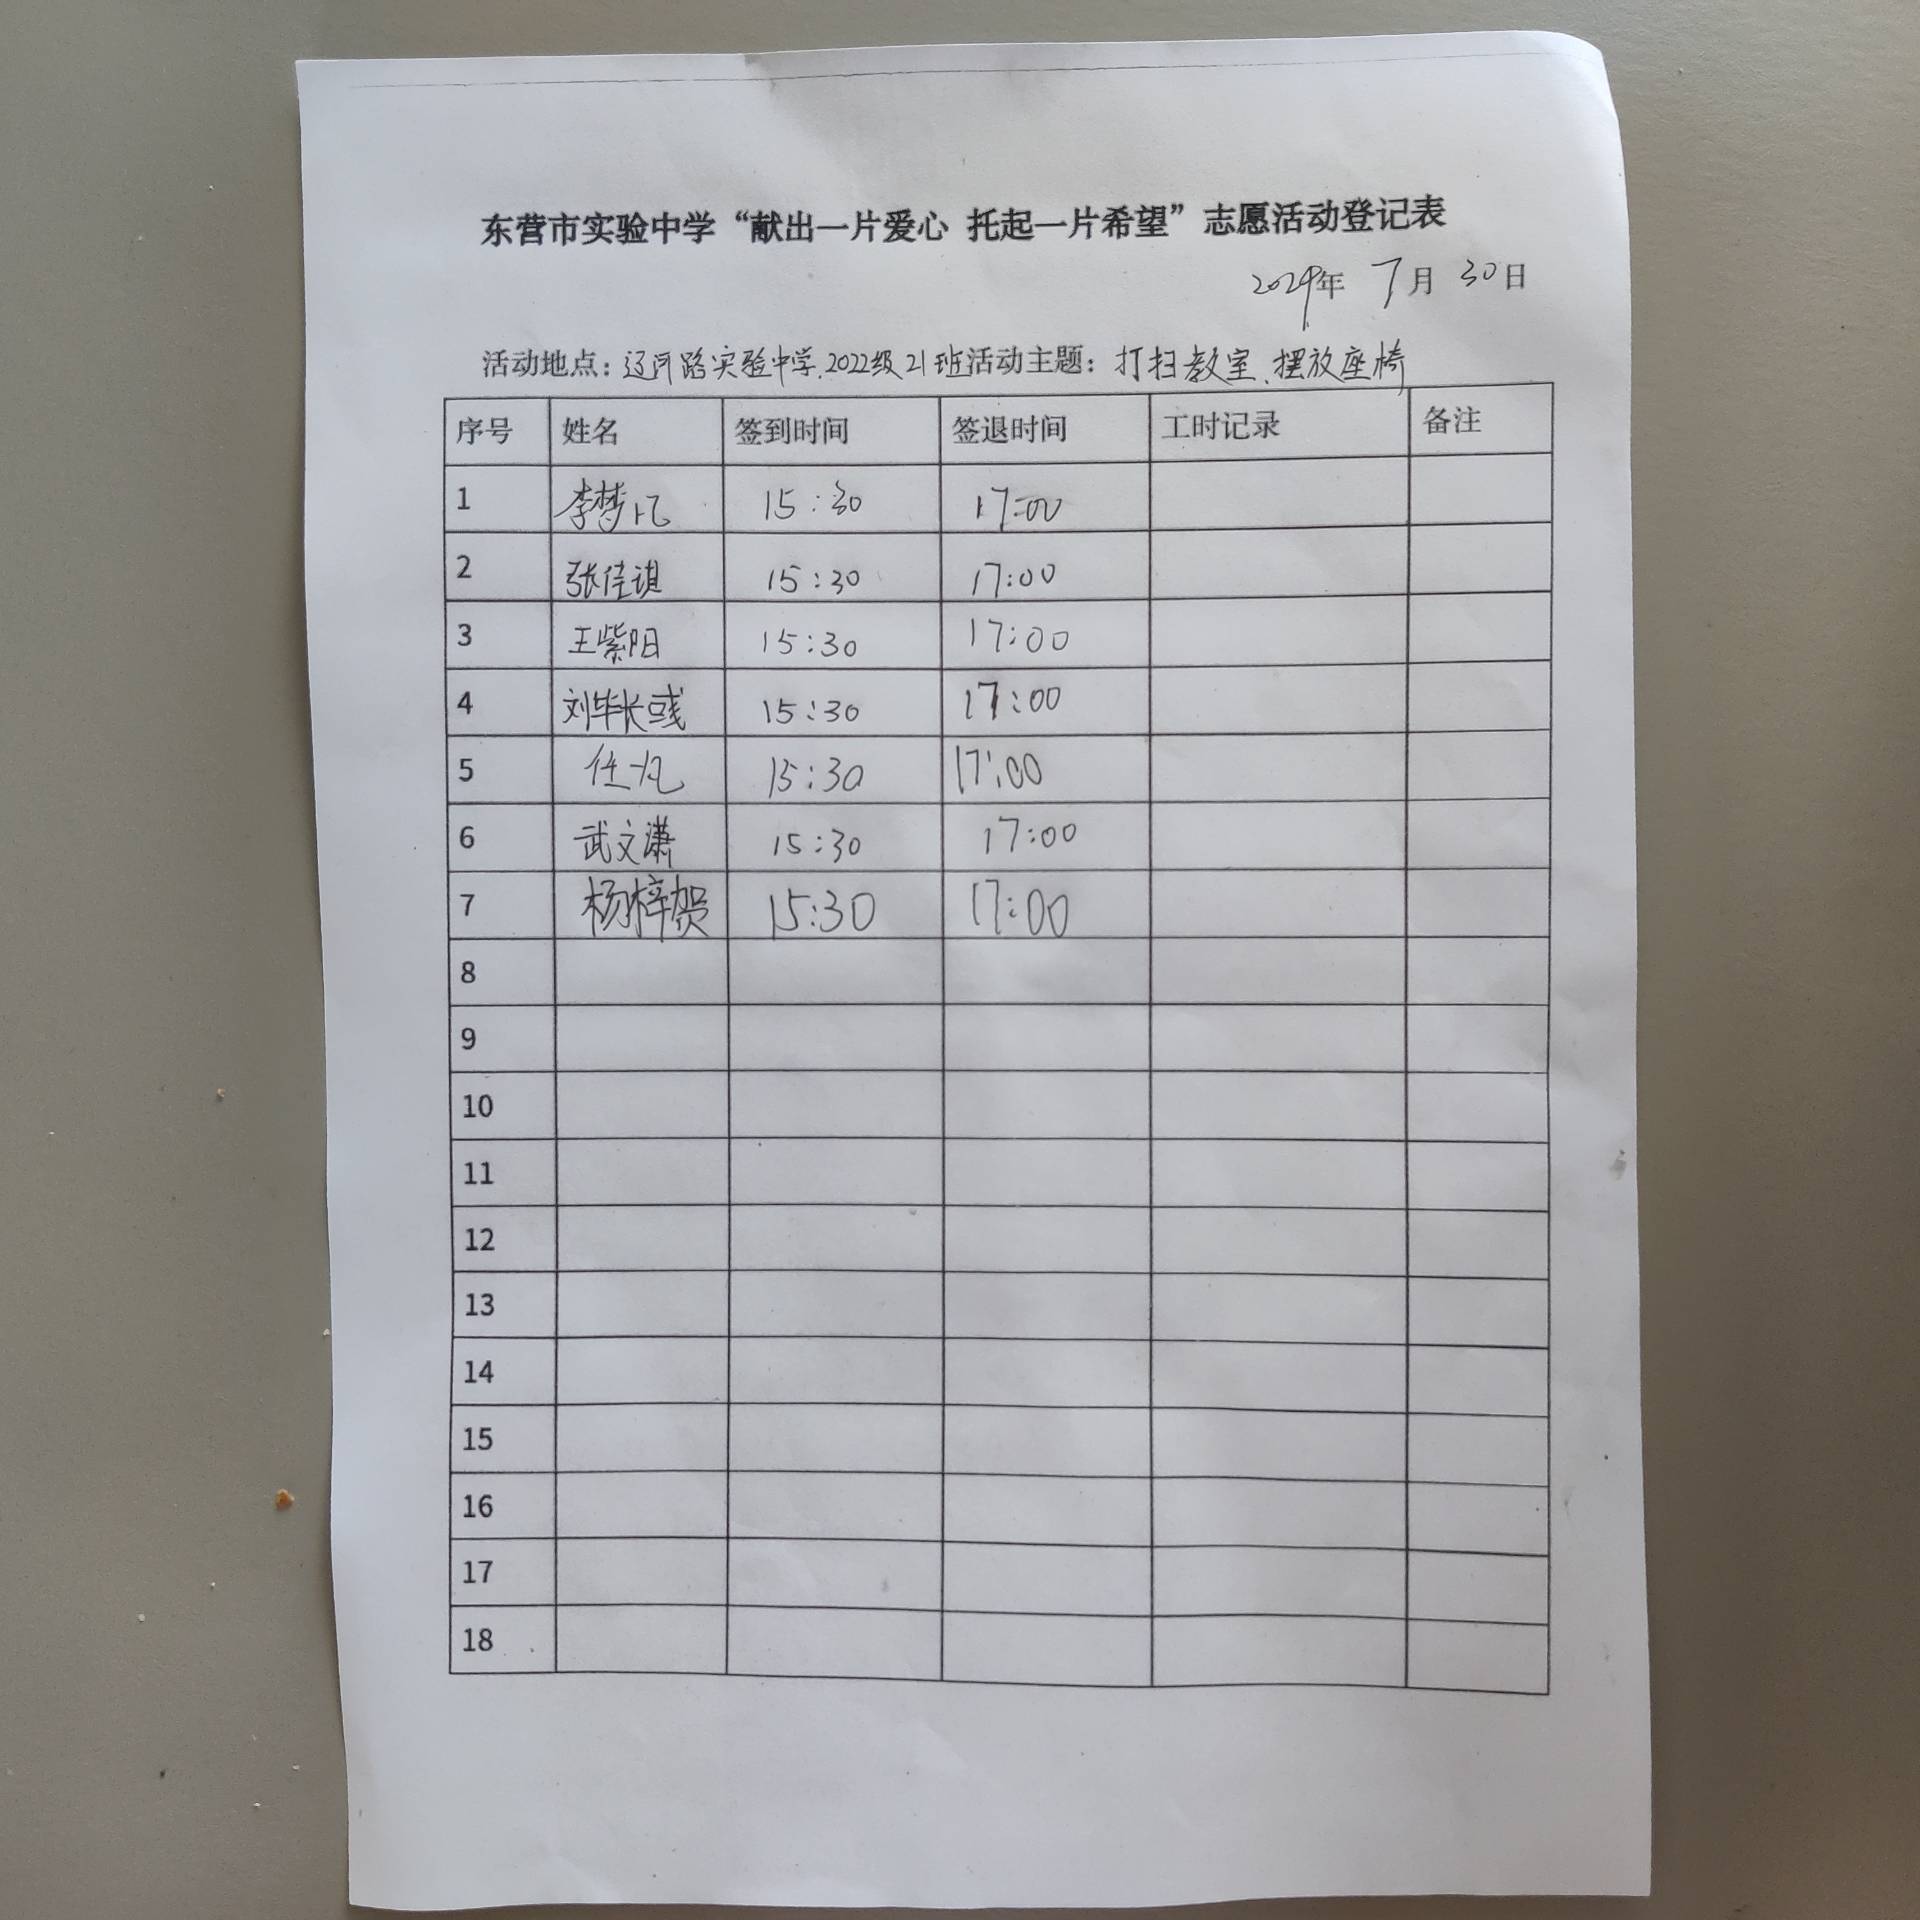 东营市实验中学“献出一片爱心 托起一片希望”志愿活动登记表
2024年 7月 30日
活动地点：辽河路实验中学.2022级21班活动主题：打扫教室、摆放座椅
序号 姓名 签到时间 签退时间 工时记录 备注
1 李梦凡 15:30 17:00
2 张佳琪 15:30 17:00
3 王紫阳 15:30 17:00
4 刘毕长彧 15:30 17:00
5 任一凡 15:30 17:00
6 武文潇 15:30 17:00
7 杨梓贺 15:30 17:00
8
9
10
11
12
13
14
15
16
17
18